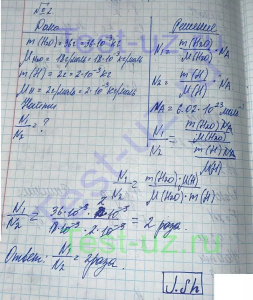 №2
Дано
m(H2O)=36г=36·10⁻³кг
μH2O=18г/моль=18·10⁻³кг/моль
m(H)=2г=2·10⁻³кг
μH=2г/моль=2·10⁻³кг/моль
Найти
N1/N2=?
Решение
N1=m(H2O)/μ(H2O)·NA
N2=m(H)/μ(H)·NA
NA=6.02·10²³моль⁻¹
N1/N2=m(H2O)NA/μ(H2O)
m(H)NA/μ(H)
N1/N2=m(H2O)·μ(H)/μ(H2O)·m(H)
N1/N2=36·10⁻³·2·10⁻³/18·10⁻³·2·10⁻³=2 раза
Ответ: N1/N2=2раза.
Test-uz.ru